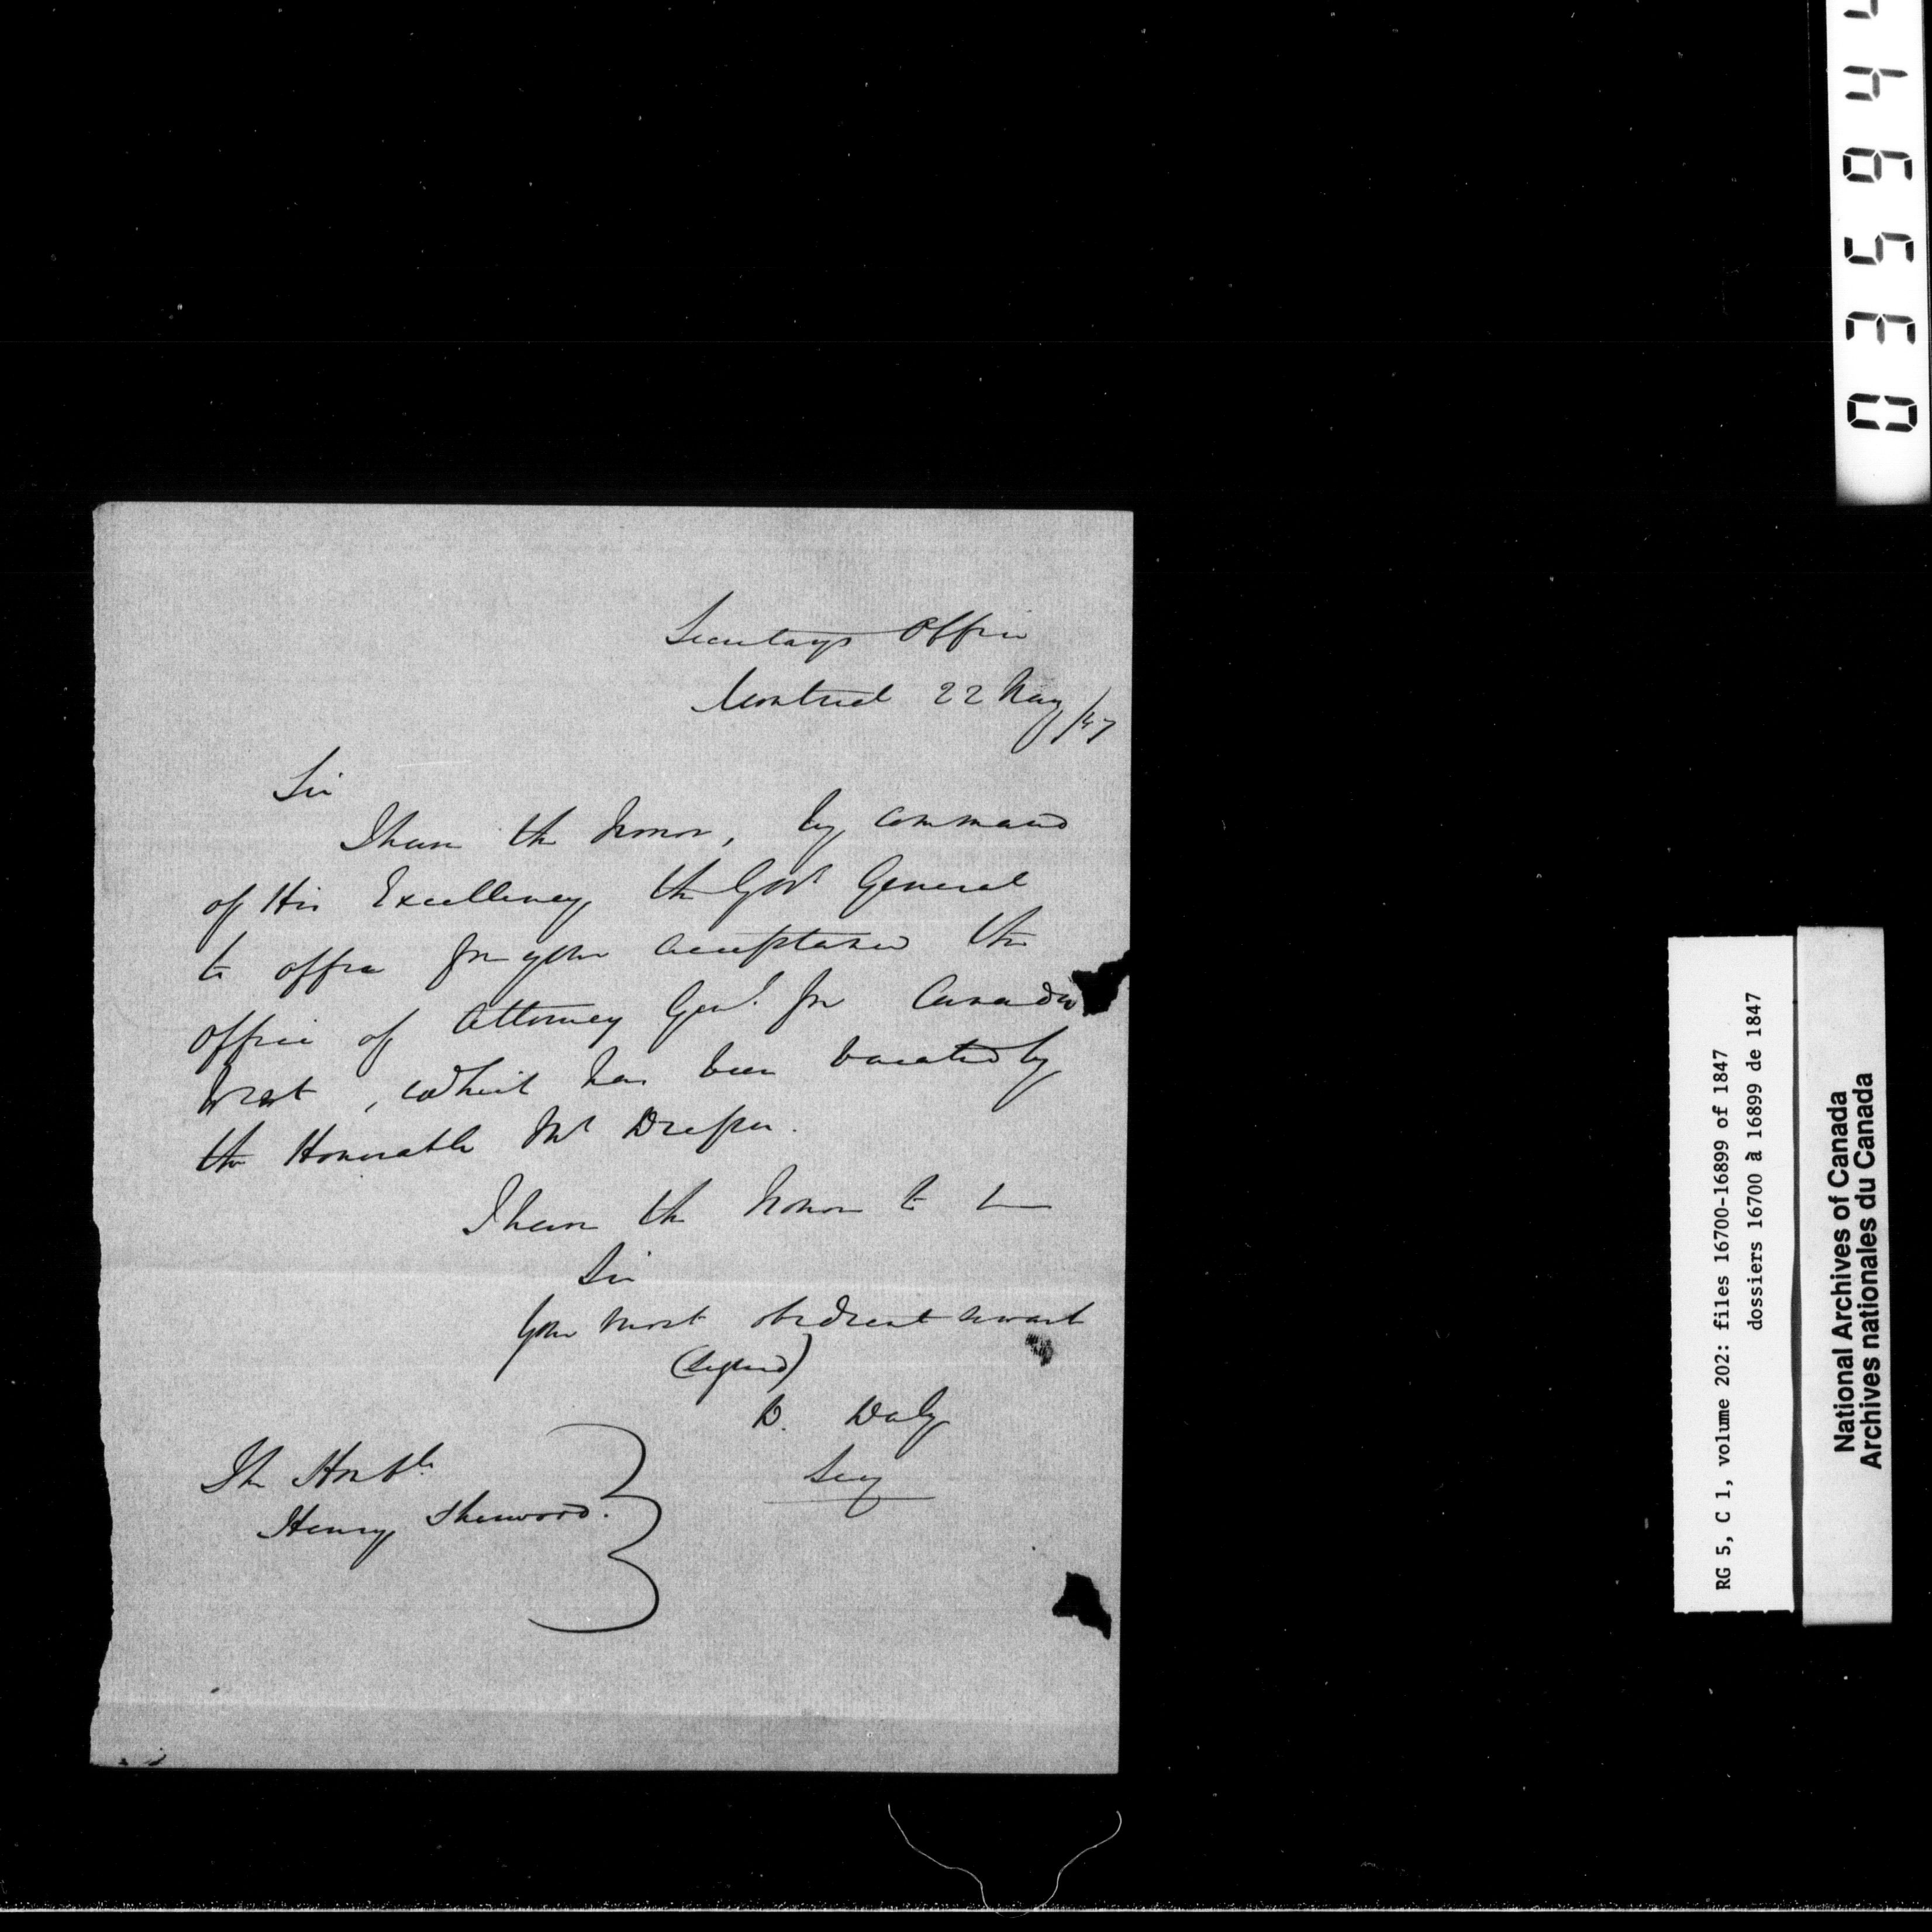 Secretarys Office
Montreal 22 May /47
Sir
I have the honor, by command
of His Excellency the Govr General
to offer for your acceptance the
office of Attorney Genl. for Canada
West, which has been vacated by
the Honorable Mr Draper.
I have the honor to be
Sir
Your most obedient servant
(Signed)
D. Daly
Secy
The Honble
Henry Sherwood.
RG 5, C 1, volume 202: files 16700-16899 of 1847
dossiers 16700 à 16899 de 1847
National Archives of Canada
Archives nationales du Canada